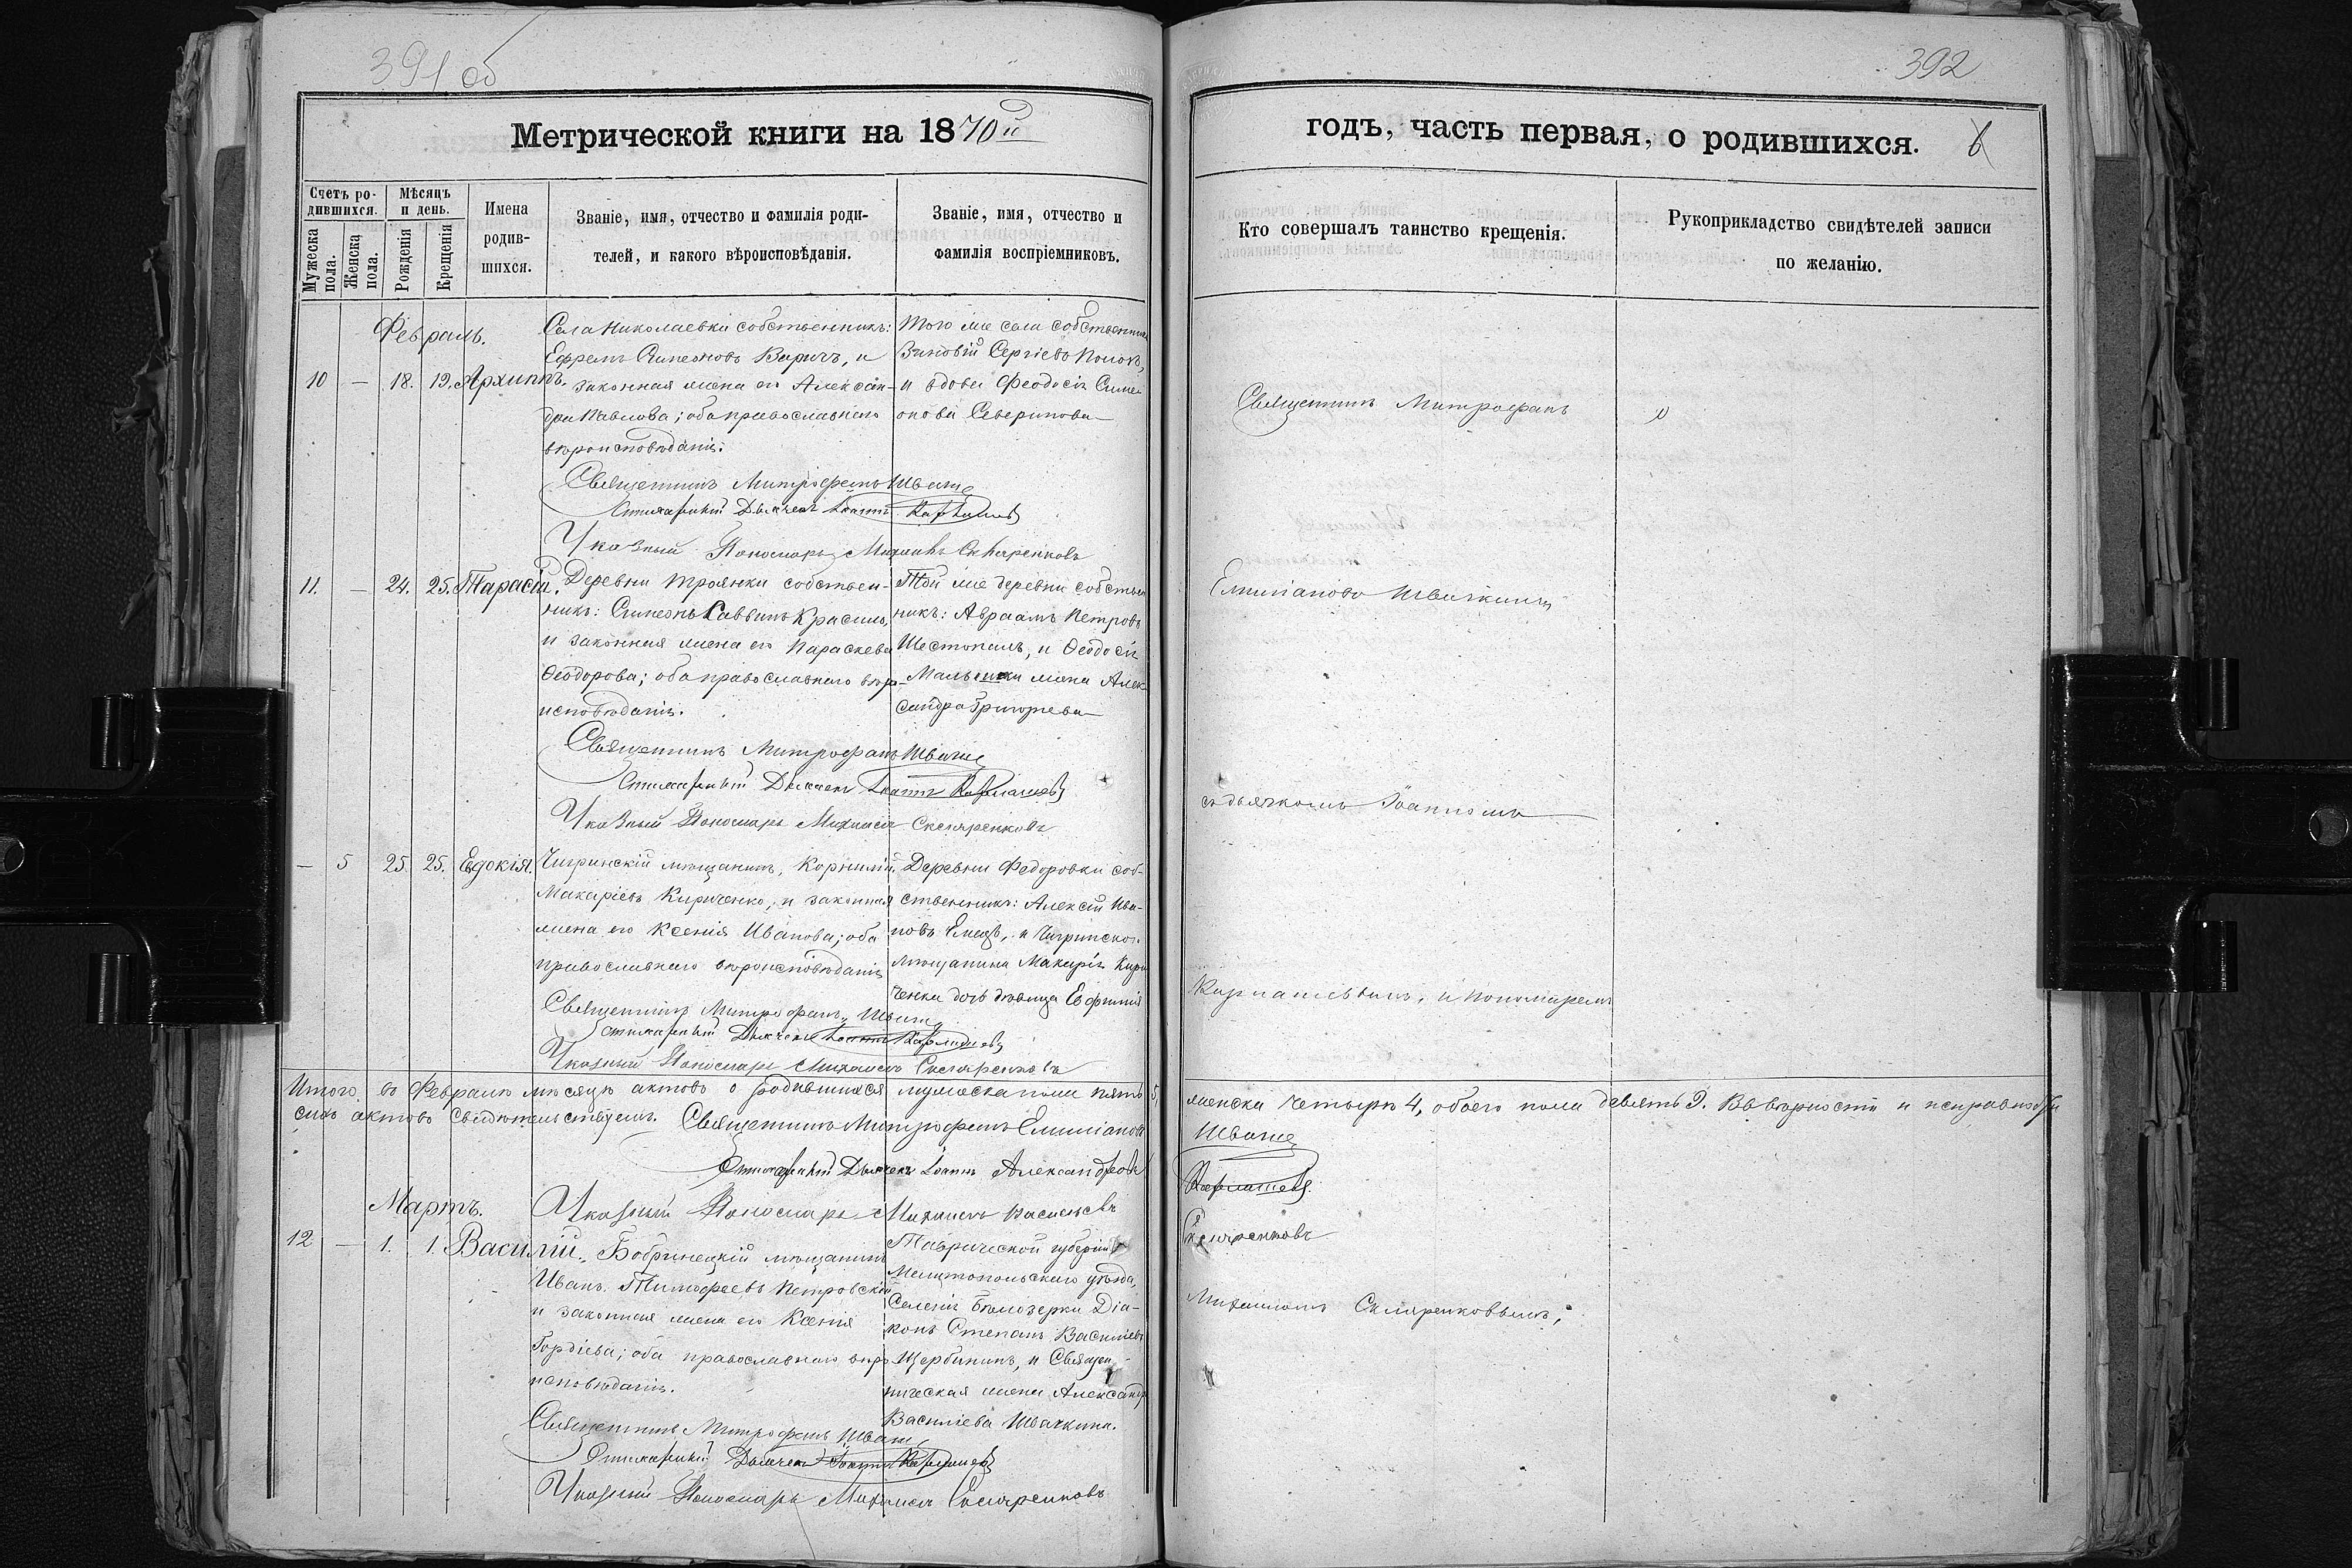 391 об
Метрической книги на 1870й
Счетъ родившихся.
Мужеска пола.
Женска пола.
Мѣсяцъ и день.
Рожденія
Крещенія
Имена родившихся.
Званіе, имя, отчество и фамилія родителей, и какого вѣроисповѣданія.
Званіе, имя, отчество и фамилія воспріемниковъ.
Февраль.
10 — 18. 19. Архиппъ.
Села Николаевки собственникъ:
Ефремъ Симеоновъ Варичъ, и
законная жена его Алексан-
дра Павлова; оба православнаго
вѣроисповѣданія.
Того же села собственникъ
Зиновій Сергіевъ Попокъ,
и вдова Феодосія Симе
онова Северинова
Священникъ Митрофанъ Швачк
Стихарный Дьячекъ Іоаннъ Карпашев
Указный Пономарь Михаилъ Скляренковъ
11. — 24. 25. Тарасій.
Деревни Троянки собствен-
никъ: Симеонъ Саввинъ Красиль,
и законная жена его Параскева
Ѳеодорова; оба православнаго вѣро-
исповѣданія.
Той же деревни собствен
никъ: Авраамъ Петровъ
Шестопалъ, и Ѳеодосія
жена Алек
сандра Григорьева
Священникъ Митрофанъ Швачк
Стихарный Дьячекъ Іоаннъ Карпашевъ
Указный Пономарь Михаилъ Скляренковъ
— 5 25. 25. Евдокія.
Чигринскій мѣщанинъ, Корнилій
Макаріевъ Кириченко, и законная
жена его Ксенія Иванова; оба
православнаго вѣроисповѣданія
Деревни Федоровки соб-
ственникъ: Алексій Ива-
новъ Емецъ, и Чигринскаго
мѣщанина Макарія Кири
ченка дочь дѣвица Евфимія
Священникъ Митрофанъ Швачк
Стихарный Дьячекъ Іоаннъ Карпашевъ
Указный Пономарь Михаилъ Скляренковъ
Итого въ Февралѣ мѣсяцѣ актовъ о родившихся мужеска пола пять 5,
сихъ актовъ свидѣтельствуемъ. Священникъ Митрофанъ Емиліановъ
Стихарный Дьячекъ Іоаннъ Александровъ
Указный Пономарь Михаилъ Васильевъ
Мартъ.
12 — 1. 1. Василій.
Бобринецкій мѣщанинъ
Иванъ Тимофеевъ Петровскій
и законная жена его Ксенія
Гордіева; оба православнаго вѣро
исповѣданія.
Таврической губерніи
Мелитопольскаго уѣзда,
Селенія Бѣлозерки Діа-
конъ Степанъ Василіевъ
Щербининъ, и Священ-
ническая жена Александра
Василіева Швачкина.
Священникъ Митрофанъ Швачк
Стихарный Дьячекъ Іоаннъ Карпашевъ
Указный Пономарь Михаилъ Скляренковъ
392
годъ, часть первая, о родившихся.
6
Кто совершалъ таинство крещенія.
Рукоприкладство свидѣтелей записи по желанію.
Священникъ Митрофанъ
Емиліановъ Швачкинъ
съ дьячкомъ Іоанномъ
Карпашевымъ, и пономаремъ
женска четыре 4, обоего пола девять 9. Въ вѣрности и исправности
Швачк
Карпашевъ.
Скляренковъ
Михаиломъ Скляренковымъ;